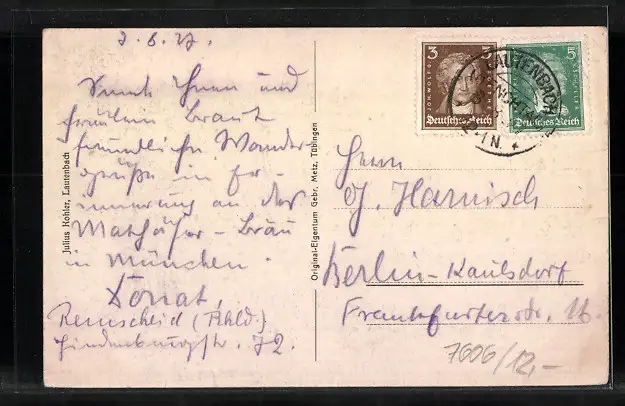 3.6.27.
Sende Ihnen und
Fräulein Braut
freundliche Wander-
grüße in Er-
innerung an das
Mathäser-Bräu
in München.
Donat,
Remscheid (Rhld.)
Hindenburgstr. 72.
Julius Kohler, Lautenbach
Original-Eigentum Gebr. Metz, Tübingen
3 3
Deutsches Reich
5
Deutsches Reich
LAUTENBACH
Herrn
J. Harnisch
Berlin-Kaulsdorf
Frankfurterstr. 16.
7606/12,-